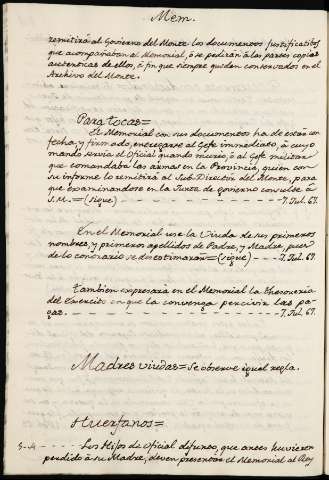 Mem.
remitirá al Govierno del Monte los documentos justificatibos
que acompañaban al Memorial, ó se pedirán á las partes copias
autenticas de ellos, á fin que siempre queden conservados en el
Archivo del Monte.
Para tocas=
El Memorial con sus documentos ha de estár con
fecha, y firmado, entregarse al Gefe inmediato, á cuyo
mando servia el Oficial quando murió, ó al Gefe militar
que comandaba las armas en la Provincia, quien con
su informe lo remitirá al Sub-Director del Monte, para
que examinandose en la Junta de Govierno consulte á
S. M. = (sigue) - - - 7. Jul. 67.
En el Memorial use la Viuda de sus primeros
nombres, y primeros apellidos de Padre, y Madre, pues
de lo contrario se desestimarán = (sigue) - - - 7. Jul. 67.
Tambien expresará en el Memorial la Thesoreria
del Exercito en que la convenga percivir las pa-
gas. - - - 7. Jul. 67.
Madres viudas = Se observe igual regla.
Huerfanos =
Los Hijos de Oficial difunto, que antes huvieren
perdido á su Madre, deven presentar el Memorial al Rey